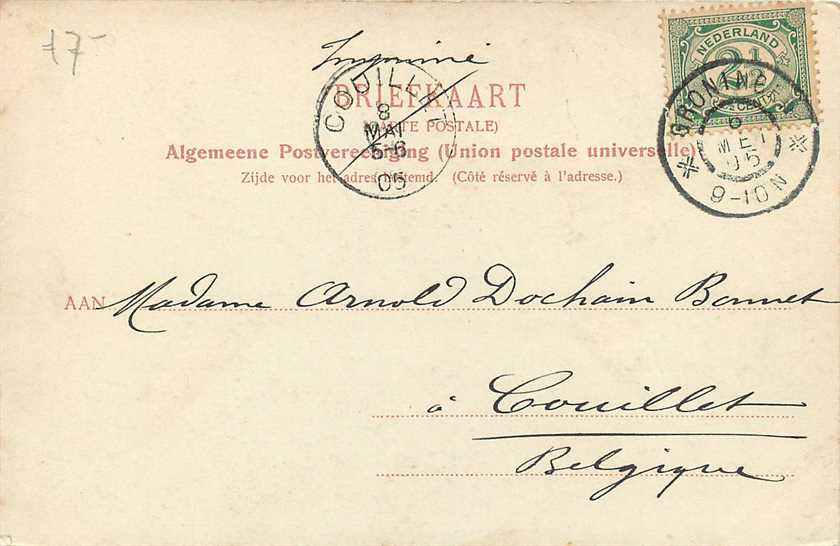 17-
Imprimé
NEDERLAND
2 1/2
CENT
BRIEFKAART
(CARTE POSTALE)
Algemeene Postvereeniging (Union postale universelle)
Zijde voor het adres bestemd. (Côté réservé à l'adresse.)
COUILLET
8
MAI
5-6
05
GRONINGEN
6
MEI
05
9-10N
AAN Madame Arnold Dochain Bonnet
à Couillet
Belgique